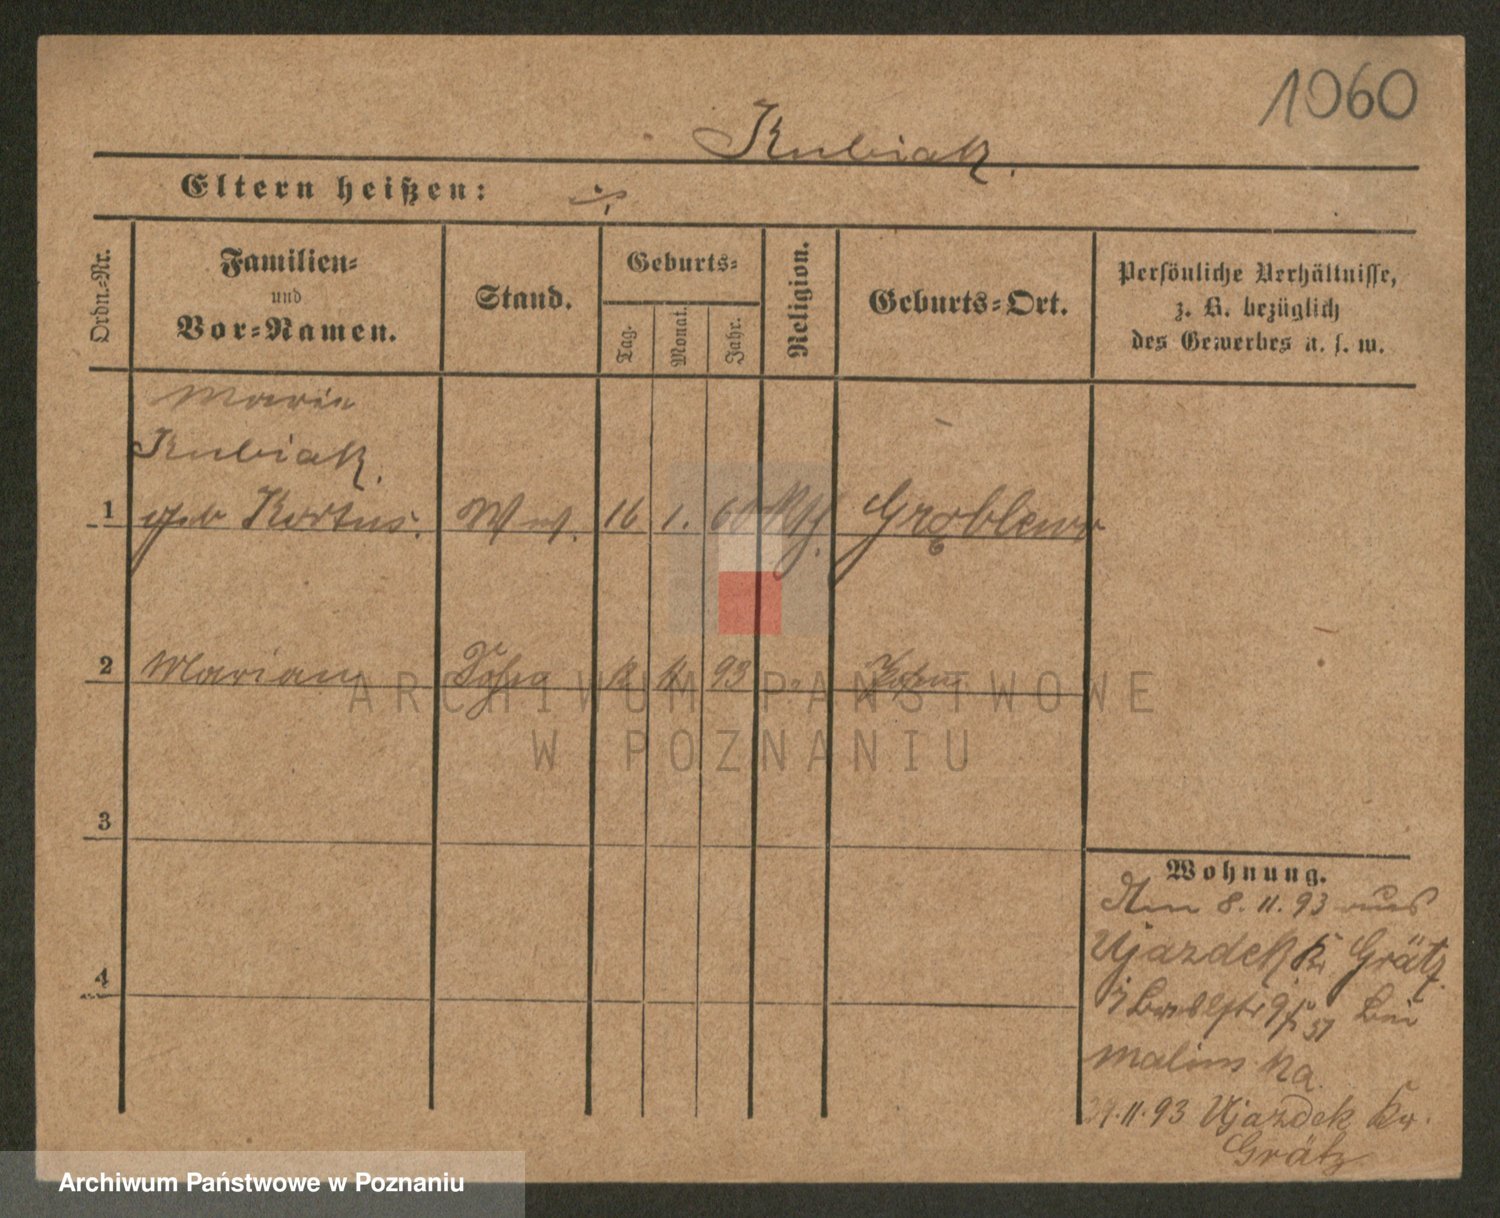 1060
Kubiak.
Eltern heißen: ./.
Ordn.-Nr.
Familien-
und
Vor-Namen.
Stand.
Geburts-
Tag.
Monat.
Jahr.
Religion.
Geburts-Ort.
Persönliche Verhältnisse,
z. B. bezüglich
des Gewerbes u. s. w.
Marie
Kubiak.
1 geb Kortus. Ww. 16 1. 60 Kth. Groblewo
2 Marian 93
3
4
Wohnung.
Am 8.11.93 aus
Ujazdek Kr Grätz.
bei
Malinska.
29.11.93 Ujazdek Kr.
Grätz
ARCHIWUM PAŃSTWOWE
W POZNANIU
Archiwum Państwowe w Poznaniu